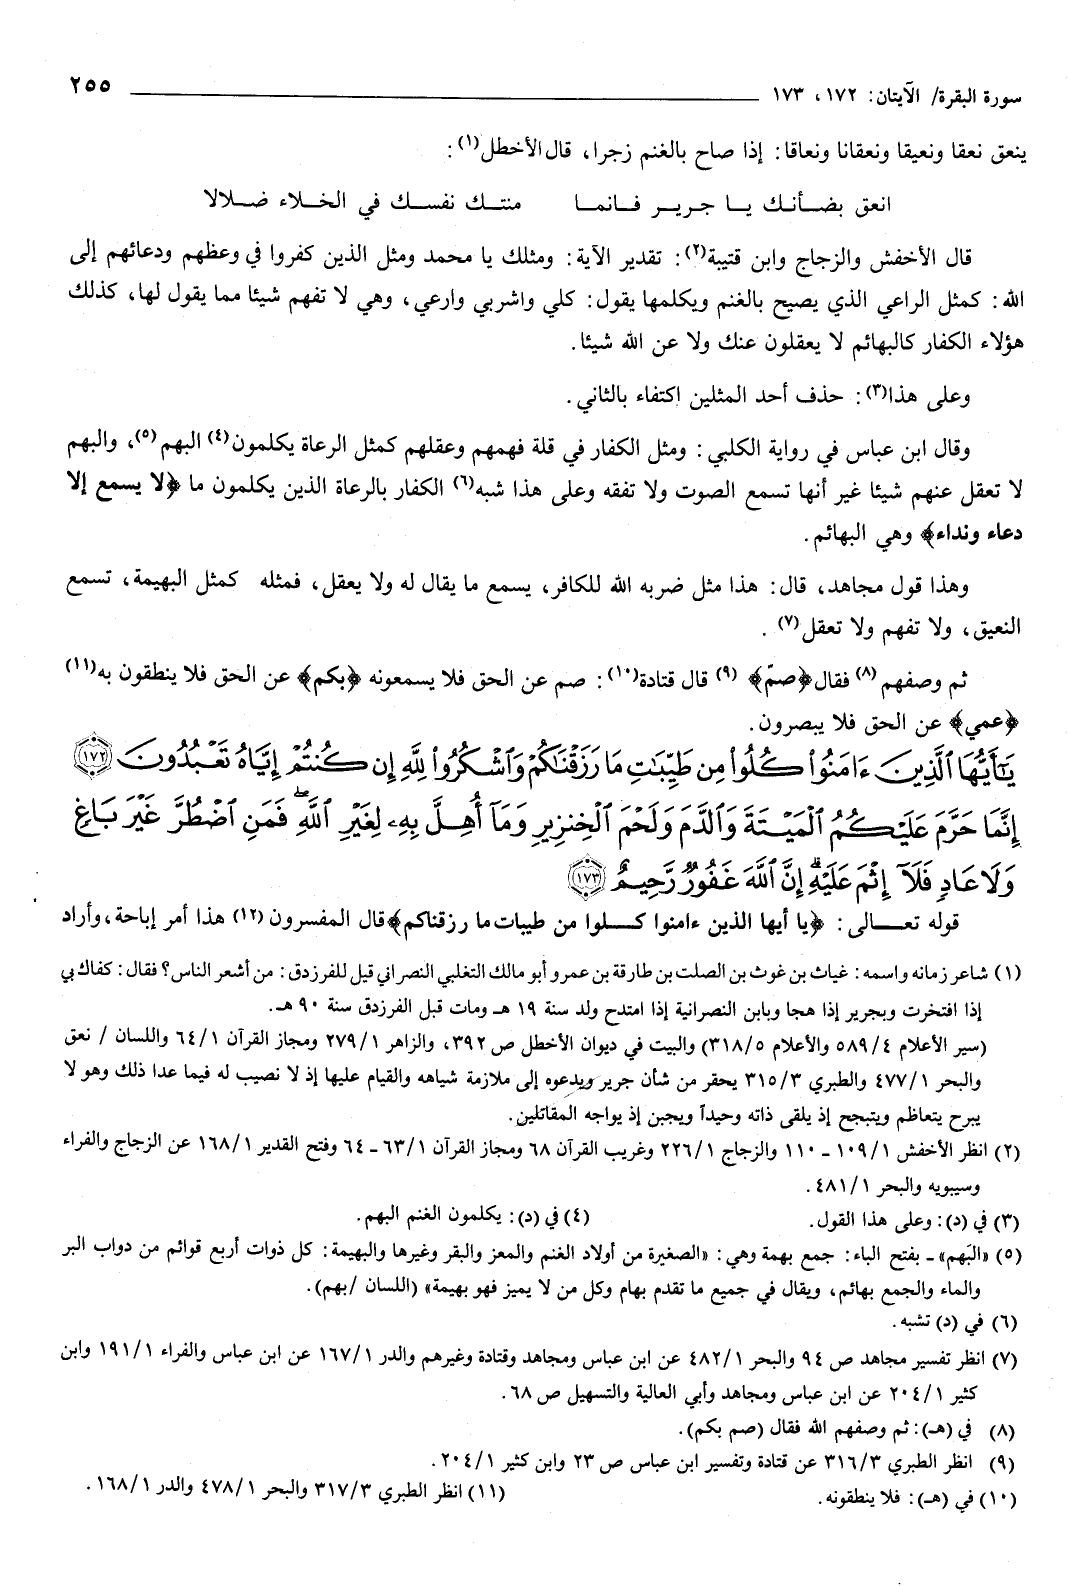 سورة البقرة/ الآيتان: ١٧٢، ١٧٣ ٢٥٥
ينعق نعقا ونعيقا ونعقانا ونعاقا: إذا صاح بالغنم زجرا، قال الأخطل(١):
انعق بضـأنـك يـا جـريـر فـانمـا منتـك نفسـك في الخـلاء ضـلالا
قال الأخفش والزجاج وابن قتيبة(٢): تقدير الآية: ومثلك يا محمد ومثل الذين كفروا في وعظهم ودعائهم إلى
الله: كمثل الراعي الذي يصيح بالغنم ويكلمها يقول: كلي واشربي وارعي، وهي لا تفهم شيئا مما يقول لها، كذلك
هؤلاء الكفار كالبهائم لا يعقلون عنك ولا عن الله شيئا.
وعلى هذا(٣): حذف أحد المثلين إكتفاء بالثاني.
وقال ابن عباس في رواية الكلبي: ومثل الكفار في قلة فهمهم وعقلهم كمثل الرعاة يكلمون(٤) البهم(٥)، والبهم
لا تعقل عنهم شيئا غير أنها تسمع الصوت ولا تفقه وعلى هذا شبه(٦) الكفار بالرعاة الذين يكلمون ما ﴿لا يسمع إلا
دعاء ونداء﴾ وهي البهائم.
وهذا قول مجاهد، قال: هذا مثل ضربه الله للكافر، يسمع ما يقال له ولا يعقل، فمثله كمثل البهيمة، تسمع
النعيق، ولا تفهم ولا تعقل(٧).
ثم وصفهم(٨) فقال ﴿صمّ﴾ (٩) قال قتادة(١٠): صم عن الحق فلا يسمعونه ﴿بكم﴾ عن الحق فلا ينطقون به(١١)
﴿عمي﴾ عن الحق فلا يبصرون.
يَٰٓأَيُّهَا ٱلَّذِينَ ءَامَنُوا۟ كُلُوا۟ مِن طَيِّبَٰتِ مَا رَزَقْنَٰكُمْ وَٱشْكُرُوا۟ لِلَّهِ إِن كُنتُمْ إِيَّاهُ تَعْبُدُونَ ١٧٢
إِنَّمَا حَرَّمَ عَلَيْكُمُ ٱلْمَيْتَةَ وَٱلدَّمَ وَلَحْمَ ٱلْخِنزِيرِ وَمَآ أُهِلَّ بِهِۦ لِغَيْرِ ٱللَّهِۖ فَمَنِ ٱضْطُرَّ غَيْرَ بَاغٍ
وَلَا عَادٍ فَلَآ إِثْمَ عَلَيْهِۚ إِنَّ ٱللَّهَ غَفُورٌ رَّحِيمٌ ١٧٣
قوله تعـــالى: ﴿يا أيها الذين ءامنوا كـلوا من طيبات ما رزقناكم﴾ قال المفسرون(١٢) هذا أمر إباحة، وأراد
(١) شاعر زمانه واسمه: غياث بن غوث بن الصلت بن طارقة بن عمرو أبو مالك التغلبي النصراني قيل للفرزدق: من أشعر الناس؟ فقال: كفاك بي
إذا افتخرت وبجرير إذا هجا وبابن النصرانية إذا امتدح ولد سنة ١٩ هـ ومات قبل الفرزدق سنة ٩٠ هـ.
(سير الأعلام ٥٨٩/٤ والأعلام ٣١٨/٥) والبيت في ديوان الأخطل ص ٣٩٢، والزاهر ٢٧٩/١ ومجاز القرآن ٦٤/١ واللسان / نعق
والبحر ٤٧٧/١ والطبري ٣١٥/٣ يحقر من شأن جرير ويدعوه إلى ملازمة شياهه والقيام عليها إذ لا نصيب له فيما عدا ذلك وهو لا
يبرح يتعاظم ويتبجح إذ يلقى ذاته وحيداً ويجبن إذ يواجه المقاتلين.
(٢) انظر الأخفش ١٠٩/١ ـ ١١٠ والزجاج ٢٢٦/١ وغريب القرآن ٦٨ ومجاز القرآن ٦٣/١ ـ ٦٤ وفتح القدير ١٦٨/١ عن الزجاج والفراء
وسيبويه والبحر ٤٨١/١.
(٣) في (د): وعلى هذا القول. (٤) في (د): يكلمون الغنم البهم.
(٥) «البَهم» ـ بفتح الباء: جمع بهمة وهي: «الصغيرة من أولاد الغنم والمعز والبقر وغيرها والبهيمة: كل ذوات أربع قوائم من دواب البر
والماء والجمع بهائم، ويقال في جميع ما تقدم بهام وكل من لا يميز فهو بهيمة» (اللسان /بهم).
(٦) في (د) تشبه.
(٧) انظر تفسير مجاهد ص ٩٤ والبحر ٤٨٢/١ عن ابن عباس ومجاهد وقتادة وغيرهم والدر ١٦٧/١ عن ابن عباس والفراء ١٩١/١ وابن
كثير ٢٠٤/١ عن ابن عباس ومجاهد وأبي العالية والتسهيل ص ٦٨.
(٨) في (هـ): ثم وصفهم الله فقال (صم بكم).
(٩) انظر الطبري ٣١٦/٣ عن قتادة وتفسير ابن عباس ص ٢٣ وابن كثير ٢٠٤/١.
(١٠) في (هـ): فلا ينطقونه. (١١) انظر الطبري ٣١٧/٣ والبحر ٤٧٨/١ والدر ١٦٨/١.